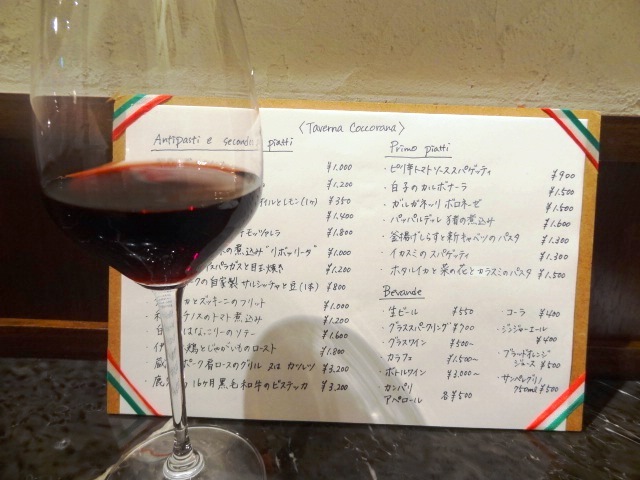 〈Taverna Coccorana〉
Antipasti e secondi piatti
¥1.000
¥1.200
イルとレモン(1ヶ) ¥350
¥1.400
モッツァレラ ¥800
の煮込み"リボッリータ" ¥1.000
スパラガスと目玉焼き ¥1.200
クの自家製サルシッチャと豆(1本) ¥800
カとズッキーニのフリット ¥1.000
チノスのトマト煮込み ¥1.200
はなっこリーのソテー ¥1.600
鶏とじゃがいものロースト ¥1.800
ポーク肩ロースのグリル 又は カツレツ ¥3.200
16ヶ月黒毛和牛のビステッカ ¥3.200
Primo piatti
・ピリ辛トマトソーススパゲッティ ¥900
・白子のカルボナーラ ¥1.500
・ガルガネッリ ボロネーゼ ¥1.500
・パッパルデッレ 猪の煮込み ¥1.600
・釜揚げしらすと新キャベツのパスタ ¥1.300
・イカスミのスパゲッティ ¥1.300
・ホタルイカと菜の花とカラスミのパスタ ¥1.500
Bevande
・生ビール ¥550
・グラススパークリング ¥700
・グラスワイン ¥500~
・カラフェ ¥1.500~
・ボトルワイン ¥3.000~
・カンパリ
アペロール 各¥500
・コーラ ¥400
・ジンジャーエール
¥400
・ブラッドオレンジ
ジュース ¥500
・サンペレグリノ
750ml ¥500